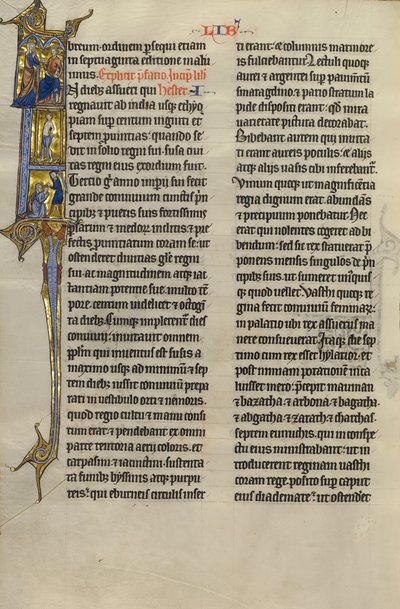 LIB
breum ordinem persequi etiam
in septuaginta editione malui
mus. Explicit pfatio. Incip lib
A dieb; assueri qui Hester. I
regnauit ab india usq; ethyo
piam sup centum uiginti et
septem puintias: quando se
dit in solio regni sui. susa ciui
tas regni eius exordium fuit.
Tertio g anno impii sui fecit
grande conuiuium cunctis prin
cipib; et pueris suis fortissimis
psarum et medorum inclitis et pre
fectis puintiarum coram se. ut
ostenderet diuitias glie regni
sui. ac magnitudinem atq; iac
tantiam potentie sue. multo tem
pore. centum uidelicet et octogin
ta dieb; Cumq; implerentur dies
conuiuii: inuitauit omnem
pplm qui inuentus est susis a
maximo usq; ad minimum. et sep
tem dieb; iussit conuiuium prepa
rari in uestibulo orti et nemoris
quod regio cultu et manu consi
tum erat. et pendebant ex omni
parte tentoria aerii coloris. et
carpasini. et iacinctini. sustenta
ta funib; byssinis atq; purpu
reis. qui eburneis circulis inser
ti erant. et columnis marmore
is fulciebantur. Lectuli quoq;
aurei et argentei sup pauimentum
smaragdino et pario stratum la
pide dispositi erant. qd mira
uarietate pictura decorabat.
Bibebant autem qui inuita
ti erant aureis poculis. et aliis
atq; aliis uasis cibi inferebantur.
Uinum quoq; ut magnificentia
regia dignum erat. abundans
et precipuum ponebatur. Nec
erat qui nolentes cogeret ad bi
bendum: sed sic rex statuerat pre
ponens mensis singulos de prin
cipib; suis. ut sumeret unusquis
q; quod uellet. Uasthi quoq; re
gina fecit conuiuium feminarum
in palatio ubi rex assuerus ma
nere consueuerat. Itaq; die sep
timo cum rex esset hylarior. et
post nimiam potationem inca
luisset mero: precepit mauman
et bazatha. et arbona. et bagatha.
et abgatha. et zarath. et charchas.
septem eunuchis. qui in conspe
ctu eius ministrabant: ut in
troducerent reginam uasthi
coram rege. posito sup caput
eius diademate. ut ostenderet